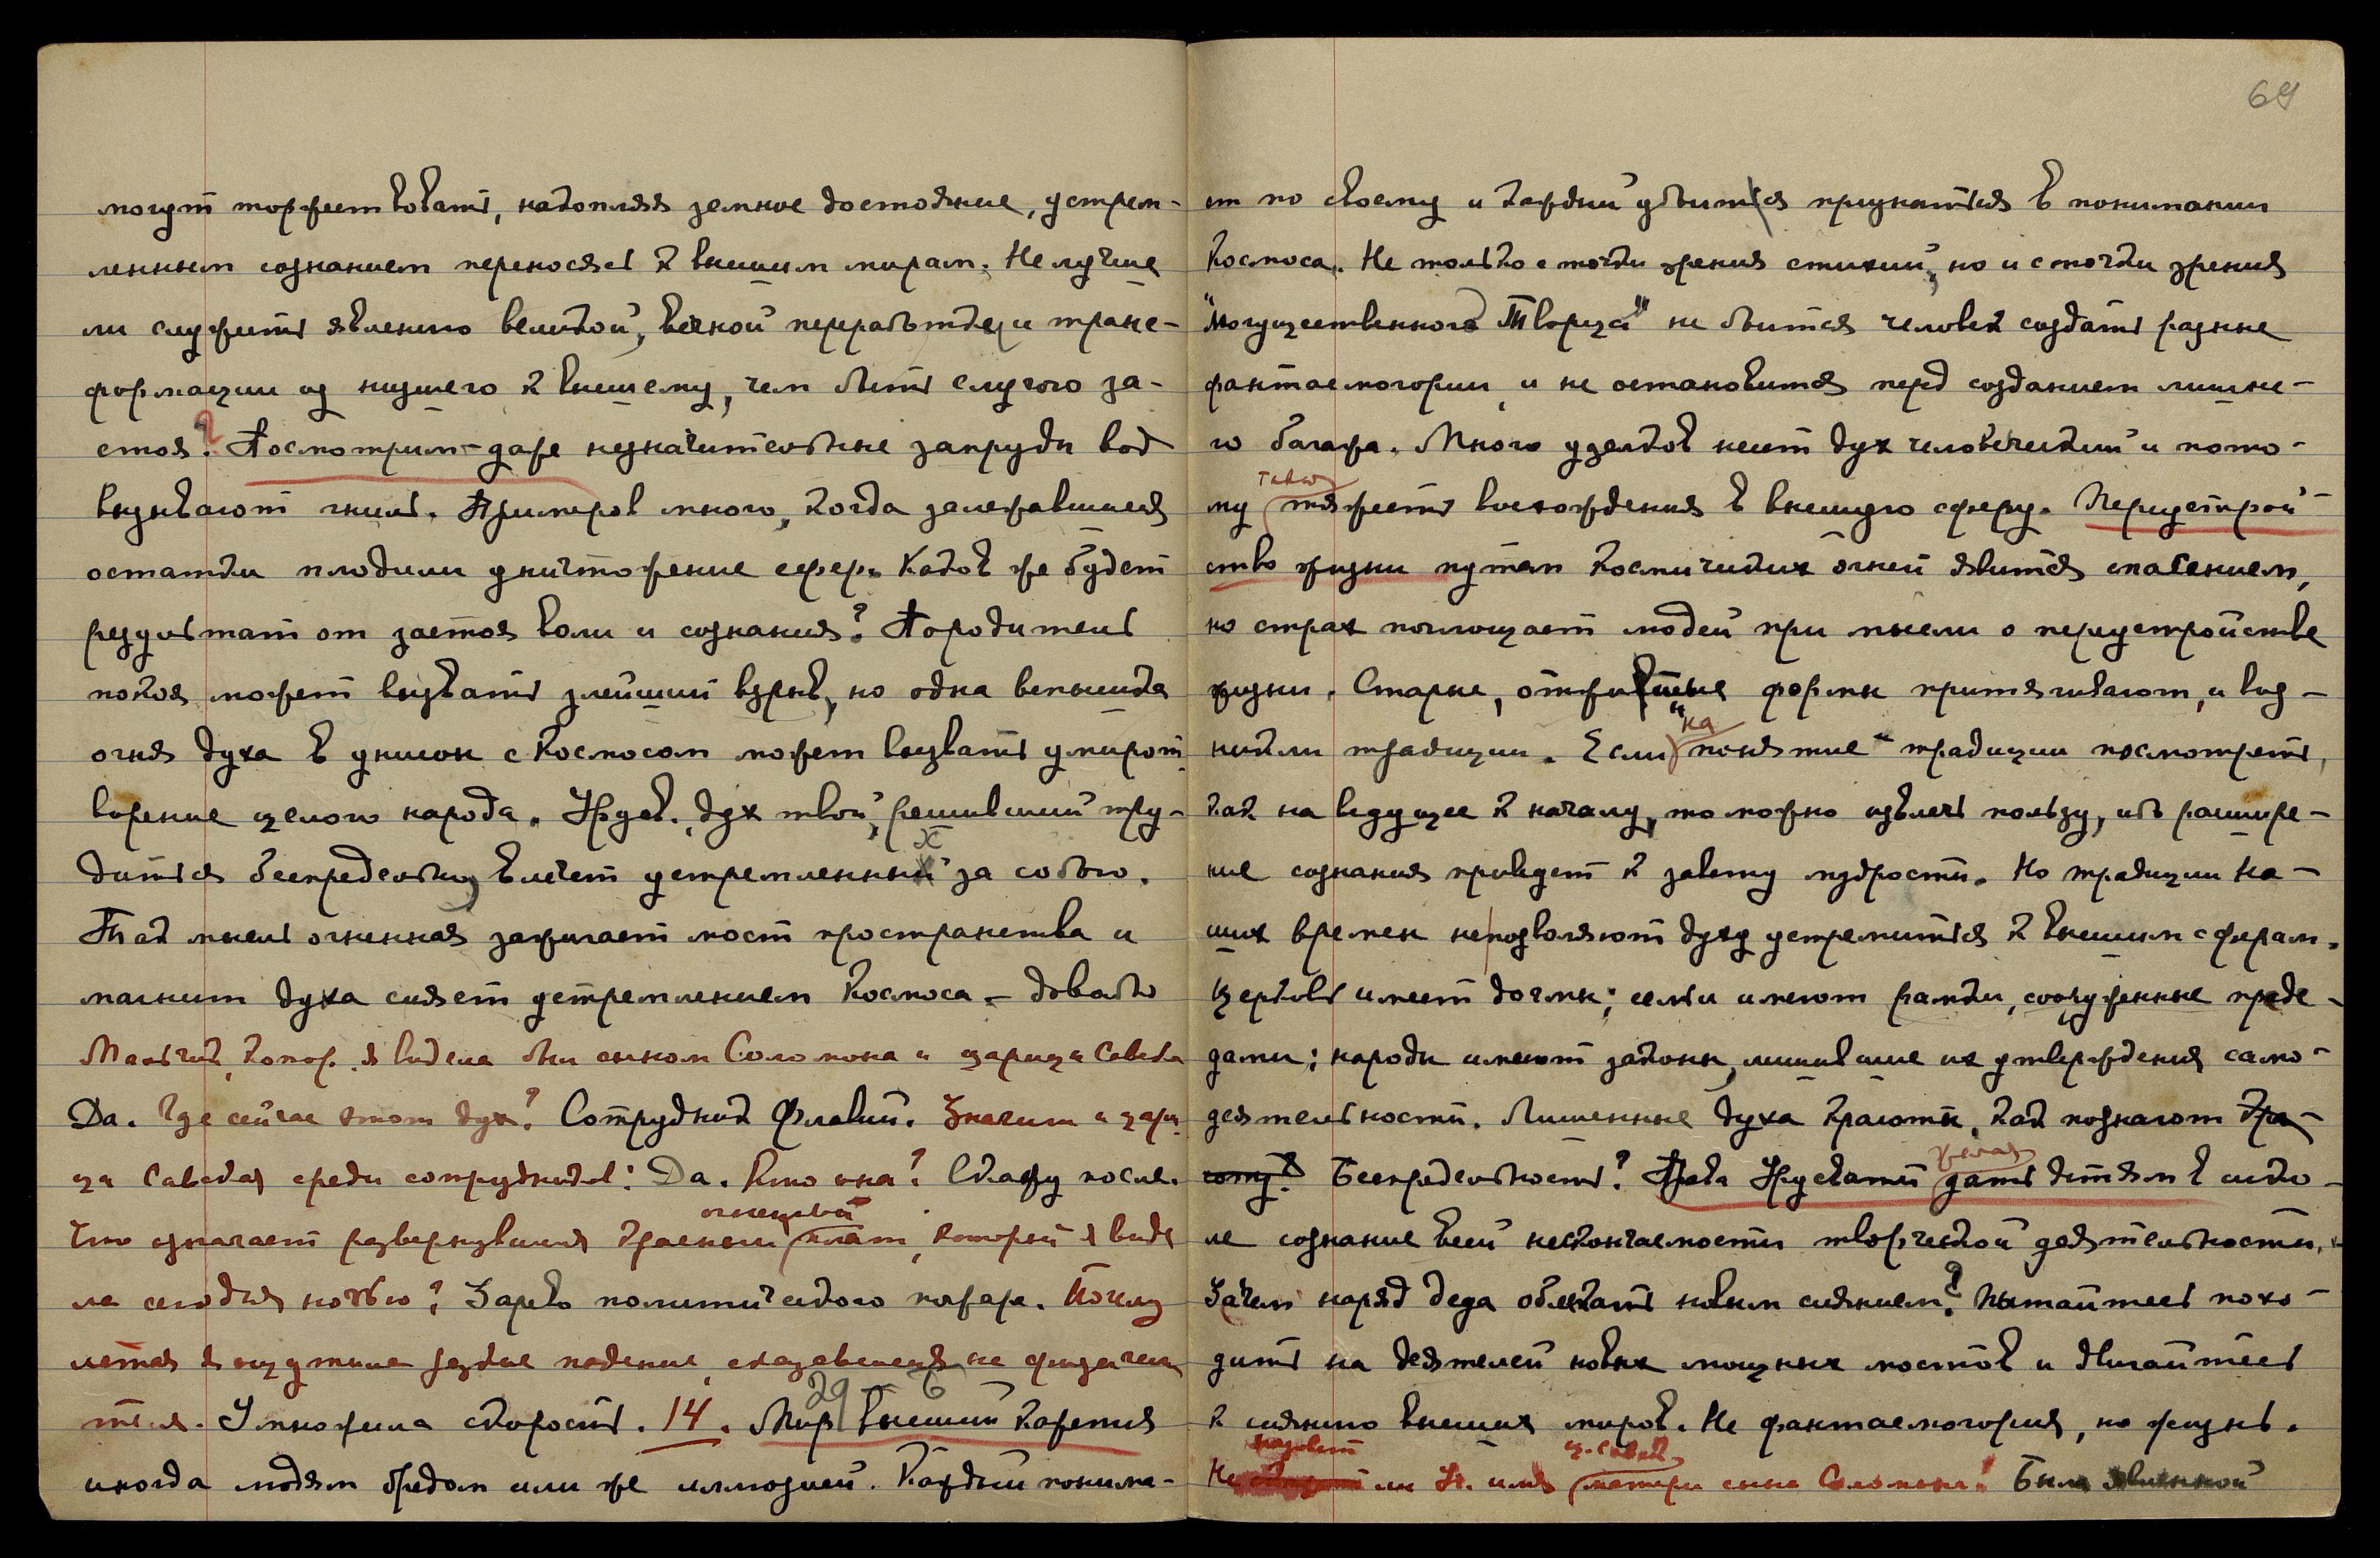 могут торжествовать, накопляя земное достояние, устрем-
ленным сознанием переносясь к высшим мирам. Не лучше
ли служить явлению великой, вечной переработке и транс-
формации из низшего к высшему, чем быть слугою за-
стоя? Посмотрим – даже незначительные запруды вод
вызывают гниль. Примеров много, когда залежавшиеся
остатки плодили уничтожение сфер. Каков же будет
результат от застоя воли и сознания? Породитель
покоя может вызвать злейший взрыв, но одна вспышка
огня духа в унисон с Космосом может вызвать умирот-
ворение целого народа. Урусв. дух твой, решивший тру-
диться беспредельно, влечет устремленных за собою.
Так мысль огненная зажигает мост пространства и
магнит духа сияет устремлением Космоса – довольно
Мальчик, котор. я видела был сыном Соломона и царицы Савской
Да. Где сейчас этот дух? Сотрудник Флавий. Значит и цари-
ца Савская среди сотрудников? Да. Кто она? Скажу после.
огненный
Что означает развернувшийся красный плат, который я виде
ла сегодня ночью? Зарево политического пожара. Почему
летая я ощутила резкое падение, сказавшееся на физическ
теле. Умножила скорость. 14. Мир высший кажется
29 – 6
иногда людям бредом или же иллюзией. Каждый понима-
69
ет по своему и каждый убоится признаться в понимании
Космоса. Не только с точки зрения стихий, но и с точки зрения
"Могущественного Творца" не боится человек создать разные
фантасмогории и не остановится перед созданием лишне-
го багажа. Много узелков несет дух человеческий и пото-
му тяжесть восхождения в высшую сферу. Переустрой-
ство жизни путем космических огней явится спасением,
но страх поглощает людей при мысли о переустройстве
жизни. Старые, отжившие формы притягивают, и воз-
на
никли традиции. Если "понятие" традиции посмотреть,
как на ведущее к началу, то можно извлечь пользу, ибо расшире-
ние сознания приведет к завету мудрости. Но традиции на-
ших времен непозволяют духу устремиться к высшим сферам.
Церковь имеет догмы; семьи имеют рамки, сооруженные преде-
дами; народы имеют законы, лишившие их утверждения само-
деятельности. Лишенные духа красоты, как познают кра-
соту? Беспредельность? Права Урусвати желая дать детям в шко-
ле сознание всей нескончаемости творческой деятельности.
Зачем наряд деда облекать новым сиянием? Пытайтесь похо-
дить на деятелей новых мощных мостов и двигайтесь
к сиянию высших миров. Не фантасмогория, но жизнь.
назовет ц. Савск.
Не ли Уч. имя матери сына Соломона? Была явленной